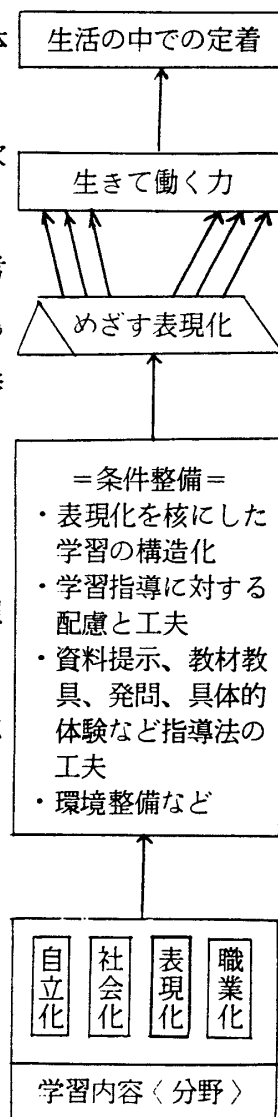 生活の中での定着
生きて働く力
めざす表現化
＝条件整備＝
・表現化を核にした
学習の構造化
・学習指導に対する
配慮と工夫
・資料提示、教材教
具、発問、具体的
体験など指導法の
工夫
・環境整備など
自立化
社会化
表現化
職業化
学習内容〈分野〉